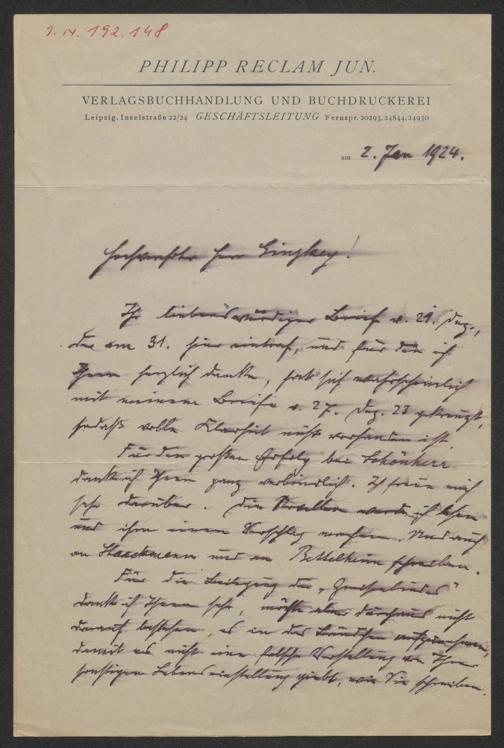 J.N. 192.148
PHILIPP RECLAM JUN.
VERLAGSBUCHHANDLUNG UND BUCHDRUCKEREI
Leipzig, Inselstraße 22/24 GESCHÄFTSLEITUNG Fernspr. 20293, 24844, 24930
am 2. Jan 1924.
Hochverehrter Herr Ginzkey!
Ihr liebenswürdiger Brief v. 29. Dez.,
der am 31. hier eintraf, und für den ich
Ihnen herzlich danke, hat sich wahrscheinlich
mit meinem Briefe v. 27. Dez. 23 gekreuzt,
sodaß volle Klarheit nicht vorhanden ist.
Für den großen Erfolg bei Schönherr
danke ich Ihnen ganz verbindlich. Ich freue mich
sehr darüber. Die Novellen werde ich lesen
und ihm einen Vorschlag machen. Und auch
an Haeckmann und an Bettelheim schreiben.
Für die Beilegung des
danke ich Ihnen sehr, möchte aber durchaus nicht
darauf bestehen, es in das Bändchen aufzunehmen,
damit es nicht eine falsche Vorstellung von Ihrer
sonstigen Lebenseinstellung giebt, wie Sie schreiben.